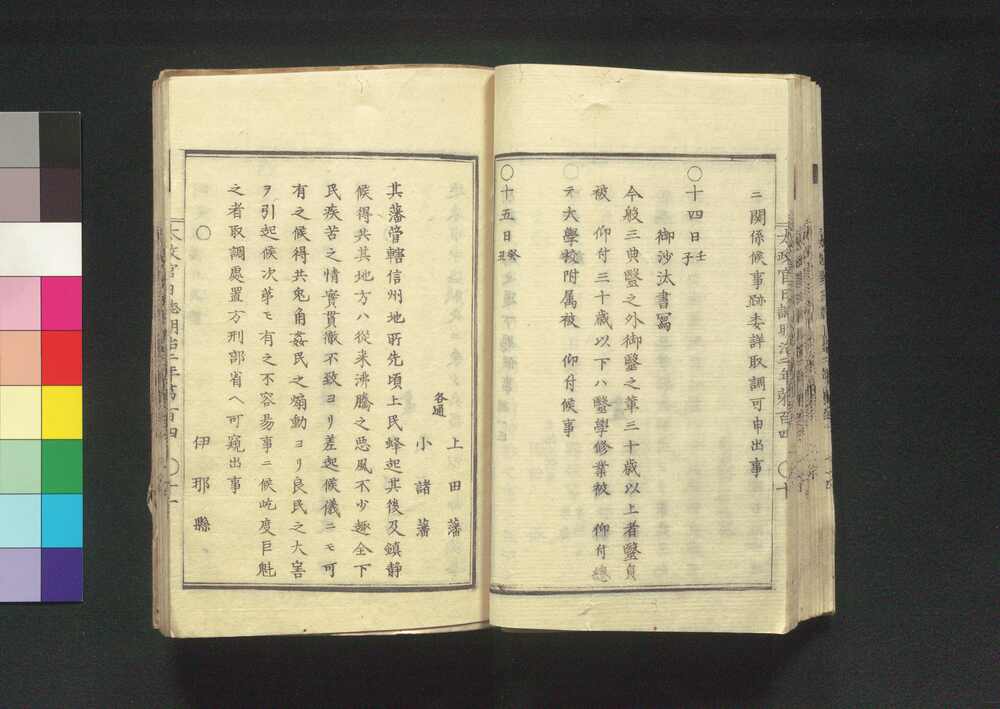 ニ關係候事跡委詳取調可申出事
〇十四日壬子
御沙汰書寫
今般三典醫之外御醫之輩三十歳以上者醫員
被　仰付三十歳以下ハ醫學修業被　仰付總
テ大學校附属被　仰付候事
〇十五日癸丑
各通
上田藩
小諸藩
其藩管轄信州地所先頃上民蜂起其後及鎮静
候得共其地方ハ従来沸騰之悪風不少趣全下
民疾苦之情實貫徹不致ヨリ差起候儀ニモ可
有之候得共兎角姦民之煽動ヨリ良民之大害
ヲ引起候次第モ有之不容易事ニ候屹度巨魁
之者取調處置方刑部省へ可窺出事
〇
伊那縣
太政官日誌明治二年第百四
〇十
太政官日誌明治二年第百四
〇十一